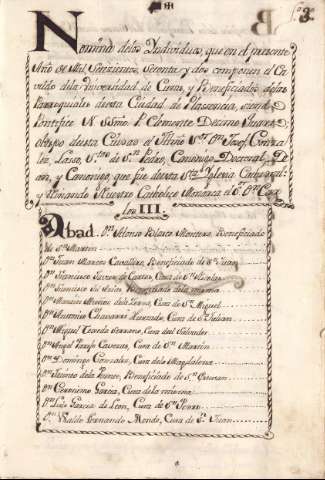 3.
Nomina de los Yndividuos, que en el presente
Año de Mil, Setezientos, Setenta, y dos componen el Cavildo
de la Vniversidad de Curas, y Beneficiados de las
Parroquiales de esta Ciudad de Plasencia, siendo
Pontifice N. SSmo. P. Clemente Decimo
obispo de esta Ciudad el Illmo. Sor. Dn. Josef Gonzalez,
Laso, Sto. de Sn. Pedro, Canonigo Doctoral, Dean,
y Canonigo, que fue de esta Sta. Yglesia Cathedral:
y Reinando Nuestro Catholico Monarca el S. Dn. Carlos
III.
Abad. Dn. Rolars Montero Beneficiado
de Sn. Martin
Dn. Juan Marcos Cavallero, Beneficiado de Sn. Juan
Dn. Francisco Xavier de Cura de Sn. Nicolas
Dn. Francisco Beneficiado de la misma
Dn. Manuel de la Cura de Sn. Miguel
Dn. Antonio Chavarri Hurtado, Cura de Sn. Julian
Dn. Miguel Texeda Serrano, Cura del Salvador
Dn. Angel Cura de Sn. Martin
Dn. Domingo Gonzalez, Cura de la Magdalena
Dn. Jacinto de la Beneficiado de Sn. Estevan
Dn. Geronimo Garcia, Cura de la misma
Dn. Luis Garcia de Leon, Cura de Sn. Pedro
Dn. Vbaldo Fernando Cura de Sn. Juan